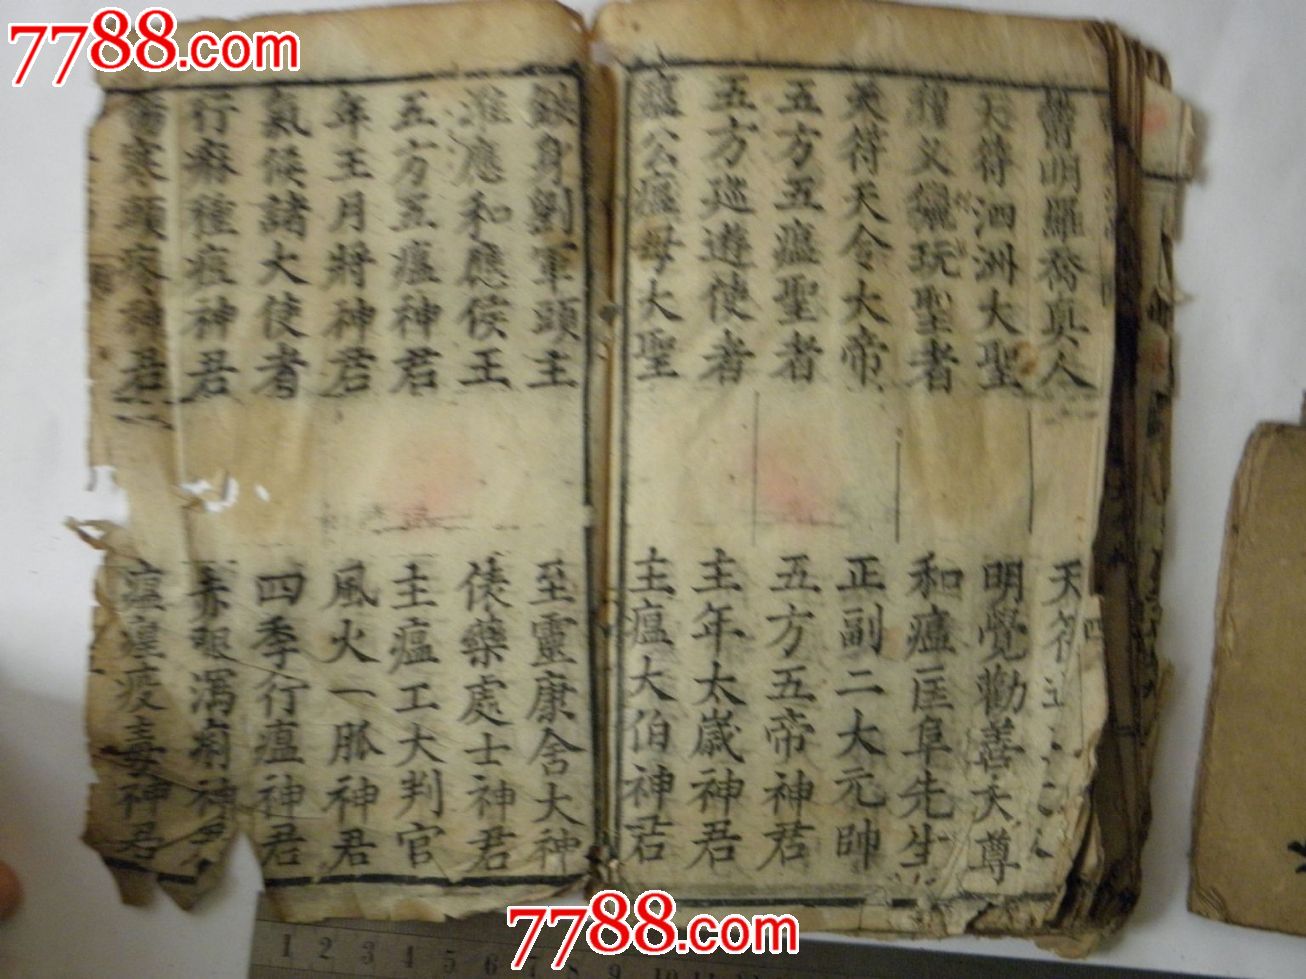 7788.com
明羅喬真人
天符泗洲大聖
父玩聖者
天符天令大帝
五方五瘟聖者
五方巡遊使者
瘟公瘟母大聖
天符
明覺勸善大尊
和瘟匡阜先生
正副二大元帥
五方五帝神君
主年太歲神君
主瘟大伯神君
身劉軍頭主
應和應侯王
五方五瘟神君
年王月將神君
氣候諸大使者
行麻種痘神君
傷寒頭疼神君
至靈康舍大神
藥處士神君
主瘟工大判官
風火一脈神君
四季行瘟神君
赤眼瀉痢神
瘟瘴疫毒神君
四
1 2 3 4 5 6 7 8 9 10 11
7788.com